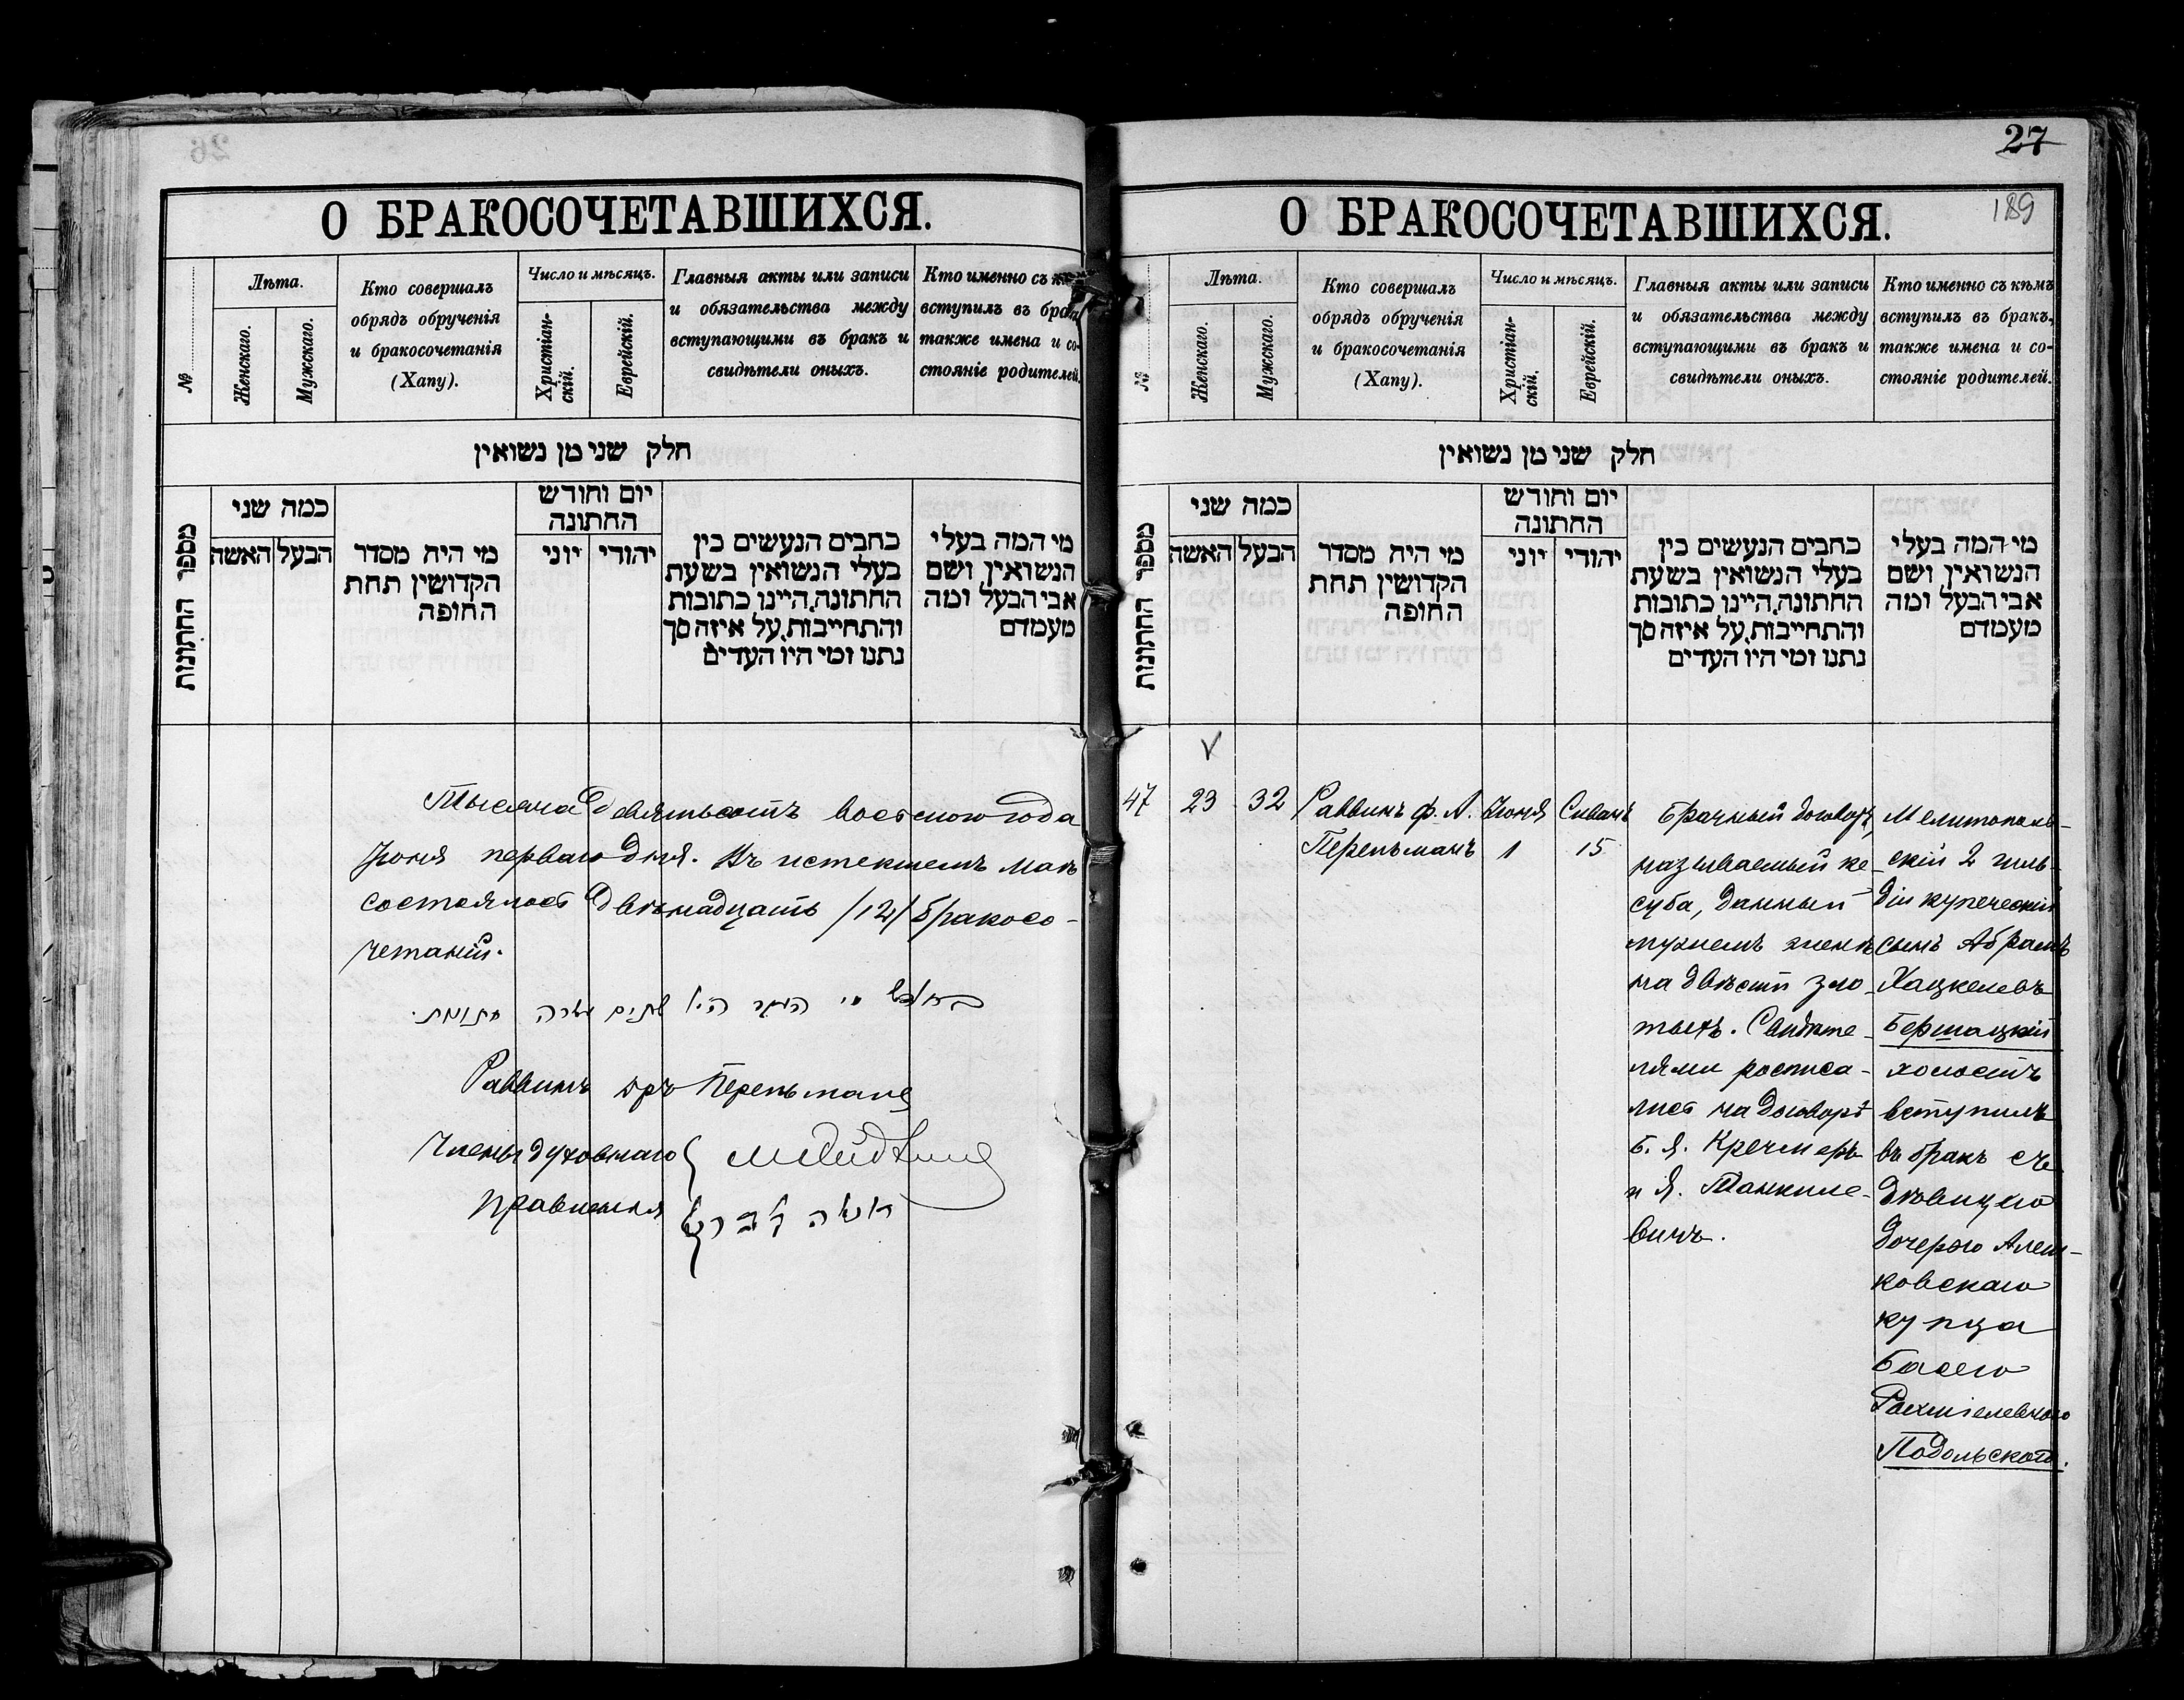 26
О БРАКОСОЧЕТАВШИХСЯ.
№
Лѣта.
Женскаго.
Мужскаго.
Кто совершалъ
обрядъ обрученія
и бракосочетанія
(Хапу).
Число и мѣсяцъ.
Христіан-
скій.
Еврейскій.
Главныя акты или записи
и обязательства между
вступающими въ бракъ и
свидѣтели оныхъ.
Кто именно съ
вступилъ въ
также имена и со-
стояніе родителей.
חלק שני מן נשואין
מספר החתונות
כמה שני
האשה
הבעל
מי היה מסדר
הקדושין תחת
החופה
יום וחודש
החתונה
יוני
יהודי
כתבים הנעשים בין
בעלי הנשואין בשעת
החתונה, היינו כתובות
והתחייבות, על איזה סך
נתנו ומי היו העדים
מי המה בעלי
הנשואין, ושם
אבי הבעל ומה
מעמדם
Тысяча девятьсотъ восьмого года
Іюня перваго дня. Въ истекшемъ маѣ
состоялось двѣнадцать /12/ бракосо-
четаній.
שתים עשרה חתונות.
Раввинъ Перельманъ
Члены духовнаго
Правленія
27
189
О БРАКОСОЧЕТАВШИХСЯ.
№
Лѣта.
Женскаго.
Мужскаго.
Кто совершалъ
обрядъ обрученія
и бракосочетанія
(Хапу).
Число и мѣсяцъ.
Христіан-
скій.
Еврейскій.
Главныя акты или записи
и обязательства между
вступающими въ бракъ и
свидѣтели оныхъ.
Кто именно съ кѣмъ
вступилъ въ бракъ,
также имена и со-
стояніе родителей.
חלק שני מן נשואין
מספר החתונות
כמה שני
האשה
הבעל
מי היה מסדר
הקדושין תחת
החופה
יום וחודש
החתונה
יוני
יהודי
כתבים הנעשים בין
בעלי הנשואין בשעת
החתונה, היינו כתובות
והתחייבות, על איזה סך
נתנו ומי היו העדים
מי המה בעלי
הנשואין, ושם
אבי הבעל ומה
מעמדם
47
23
32
Раввинъ Ф. А.
Перельманъ
Іюня
1
Сиванъ
15
Брачный договоръ,
называемый ке-
суба, данный
мужемъ женѣ
на двѣсти зло-
тыхъ. Свидѣте-
лями росписа-
лись на договорѣ
Б. Я. Кречмеръ
и Я. Танкиле-
вичъ.
Мелитополь-
скій 2 гиль-
діи купеческій
сынъ Абрамъ
Хацкелевъ
Бершацкій
холостъ
вступилъ
въ бракъ съ
дѣвицею
дочерью Алеш-
ковскаго
купца
Басею
Рахміелевною
Подольскою.